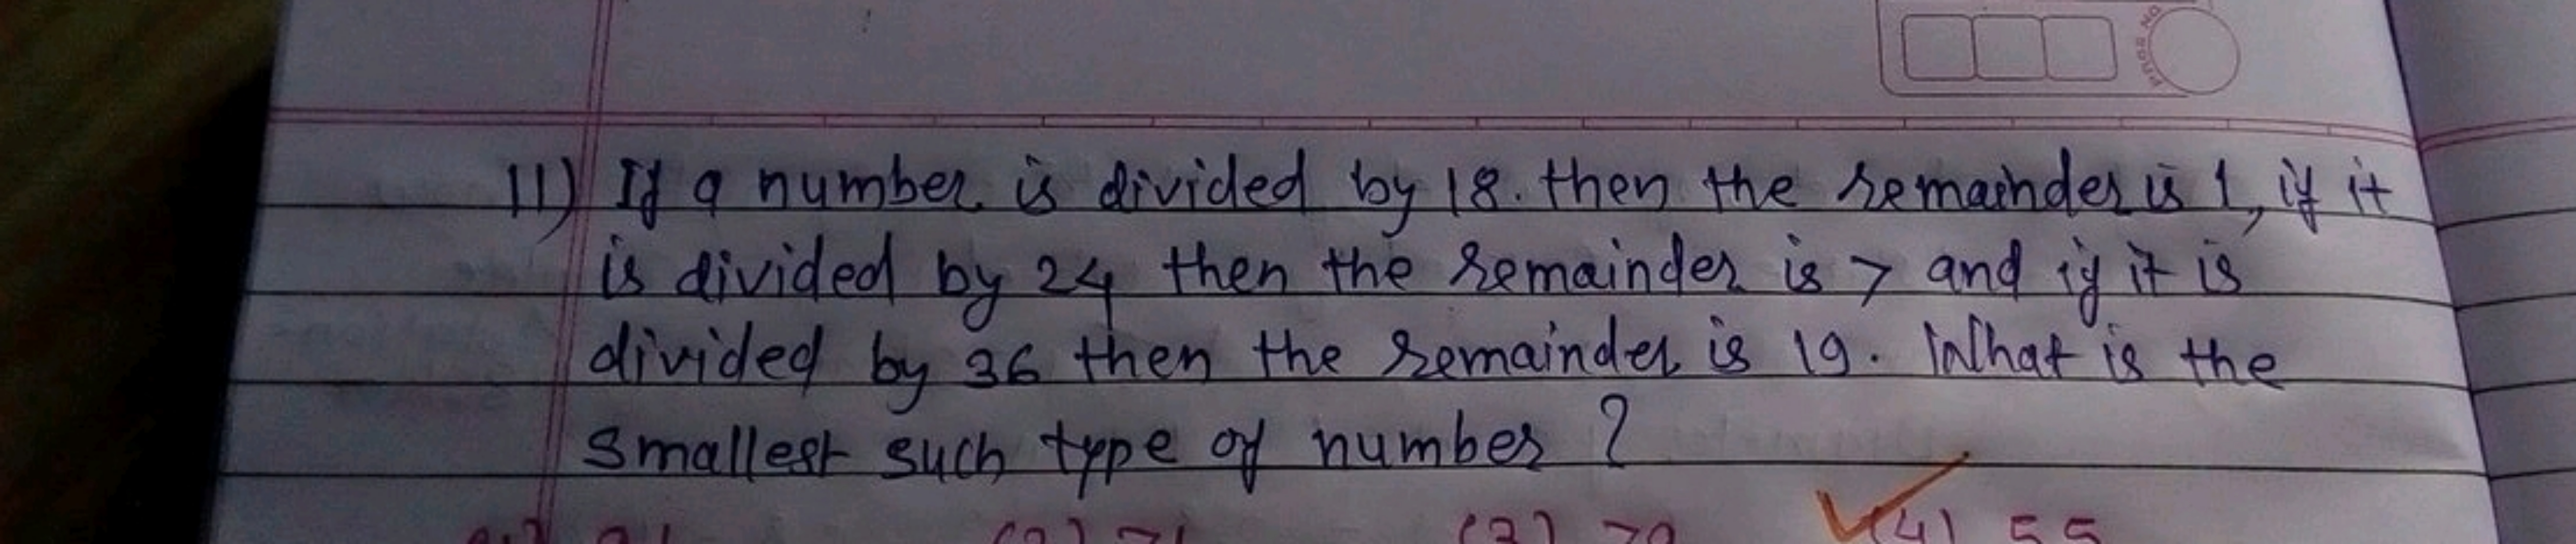 11) If a number is divided by 18. then the remainder is 1, if it
is divided by 24 then the remainder is 7 and if it is
divided by 36 then the remainder is 19. What is the
smallest such type of number ?
(4) 55